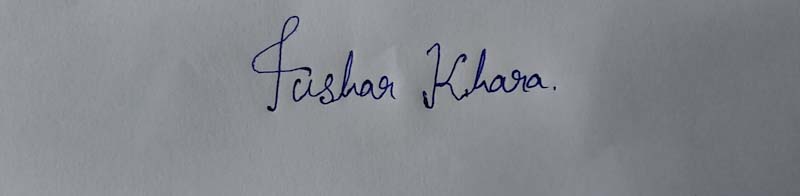 Tushar Khara.